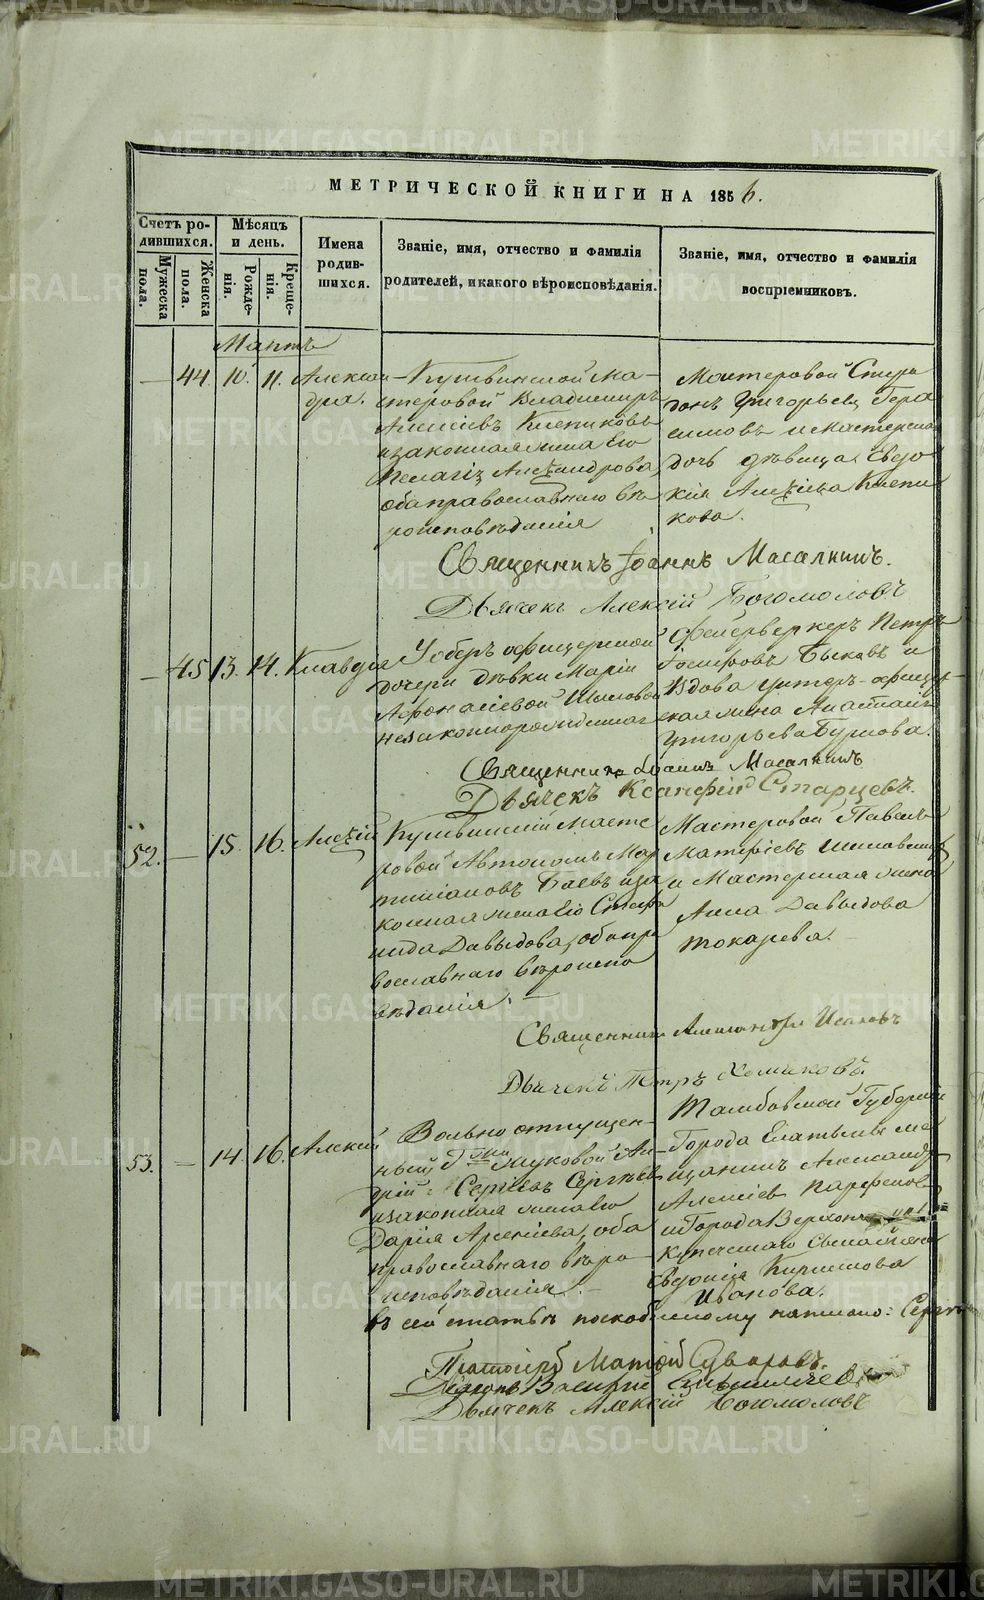 МЕТРИЧЕСКОЙ КНИГИ НА 1856.
Счетъ ро-
дившихся.
Мужеска
пола.
Женска
пола.
Мѣсяцъ
и день.
Рожде-
нія.
Креще-
нія.
Имена
родив-
шихся.
Званіе, имя, отчество и фамилія
родителей, и какого вѣроисповѣданія.
Званіе, имя, отчество и фамилія
воспріемниковъ.
Мартъ
— 44. 10. 11. Алексан-
дра.
Кушвинской Ма-
стеровой Владимиръ
Алексіевъ Клепиковъ
и законная жена его
Пелагія Александрова,
оба православнаго вѣ-
роисповѣданія
Мастеровой Спири
донъ Григорьевъ Гера
симовъ и мастерская
дочь дѣвица Евдо
кія Алексіева Клепи
кова.
Священникъ Іоаннъ Масалкинъ.
Дьячекъ Алексій Богомоловъ
— 45 13. 14. Клавдія
Уоберъ офицерской
дочери дѣвки Маріи
Афонасіевой
незаконнорожденная
Фейерверкеръ Петръ
Іосифовъ Быковъ и
Вдова унтеръ-офицер-
ская жена Анастасія
Григорьева Бурцова.
Священникъ Іоаннъ Масалкинъ
Дьячекъ Ксенофонтъ Старцевъ.
52. — 15. 16. Алексій
Кушвинскій Масте
ровой Автономъ Мар
тиніановъ Баевъ и за
конная жена его Степа
нида Давыдова, оба пра
вославнаго вѣроиспо
вѣданія. —
Мастеровой Павелъ
Матѳіевъ
и Мастерская жена
Анна Давыдова
Токарева. —
Священникъ Александръ Исаковъ
Дьячекъ Петръ Хомяковъ.
53. — 14. 16. Алексій
Вольноотпущен-
ный Гжи Жуковой Ан-
дрій Сергіевъ Сергѣевъ
и законная жена его
Дарія Арсеніева, оба
православнаго вѣро
исповѣданія. —
Тамбовской Губерніи
Города Елатьмы мѣ
щанинъ Александръ
Алексіев Парфенов
и Города
купеческаго сына жена
Евдокія Кирилова
Иванова.
въ сей статьѣ по скобленому написано: Сергіевъ
Протоіерей Матѳій Суворовъ.
Діаконъ Василій
Дьячекъ Алексій Богомоловъ
METRIKI.GASO-URAL.RU